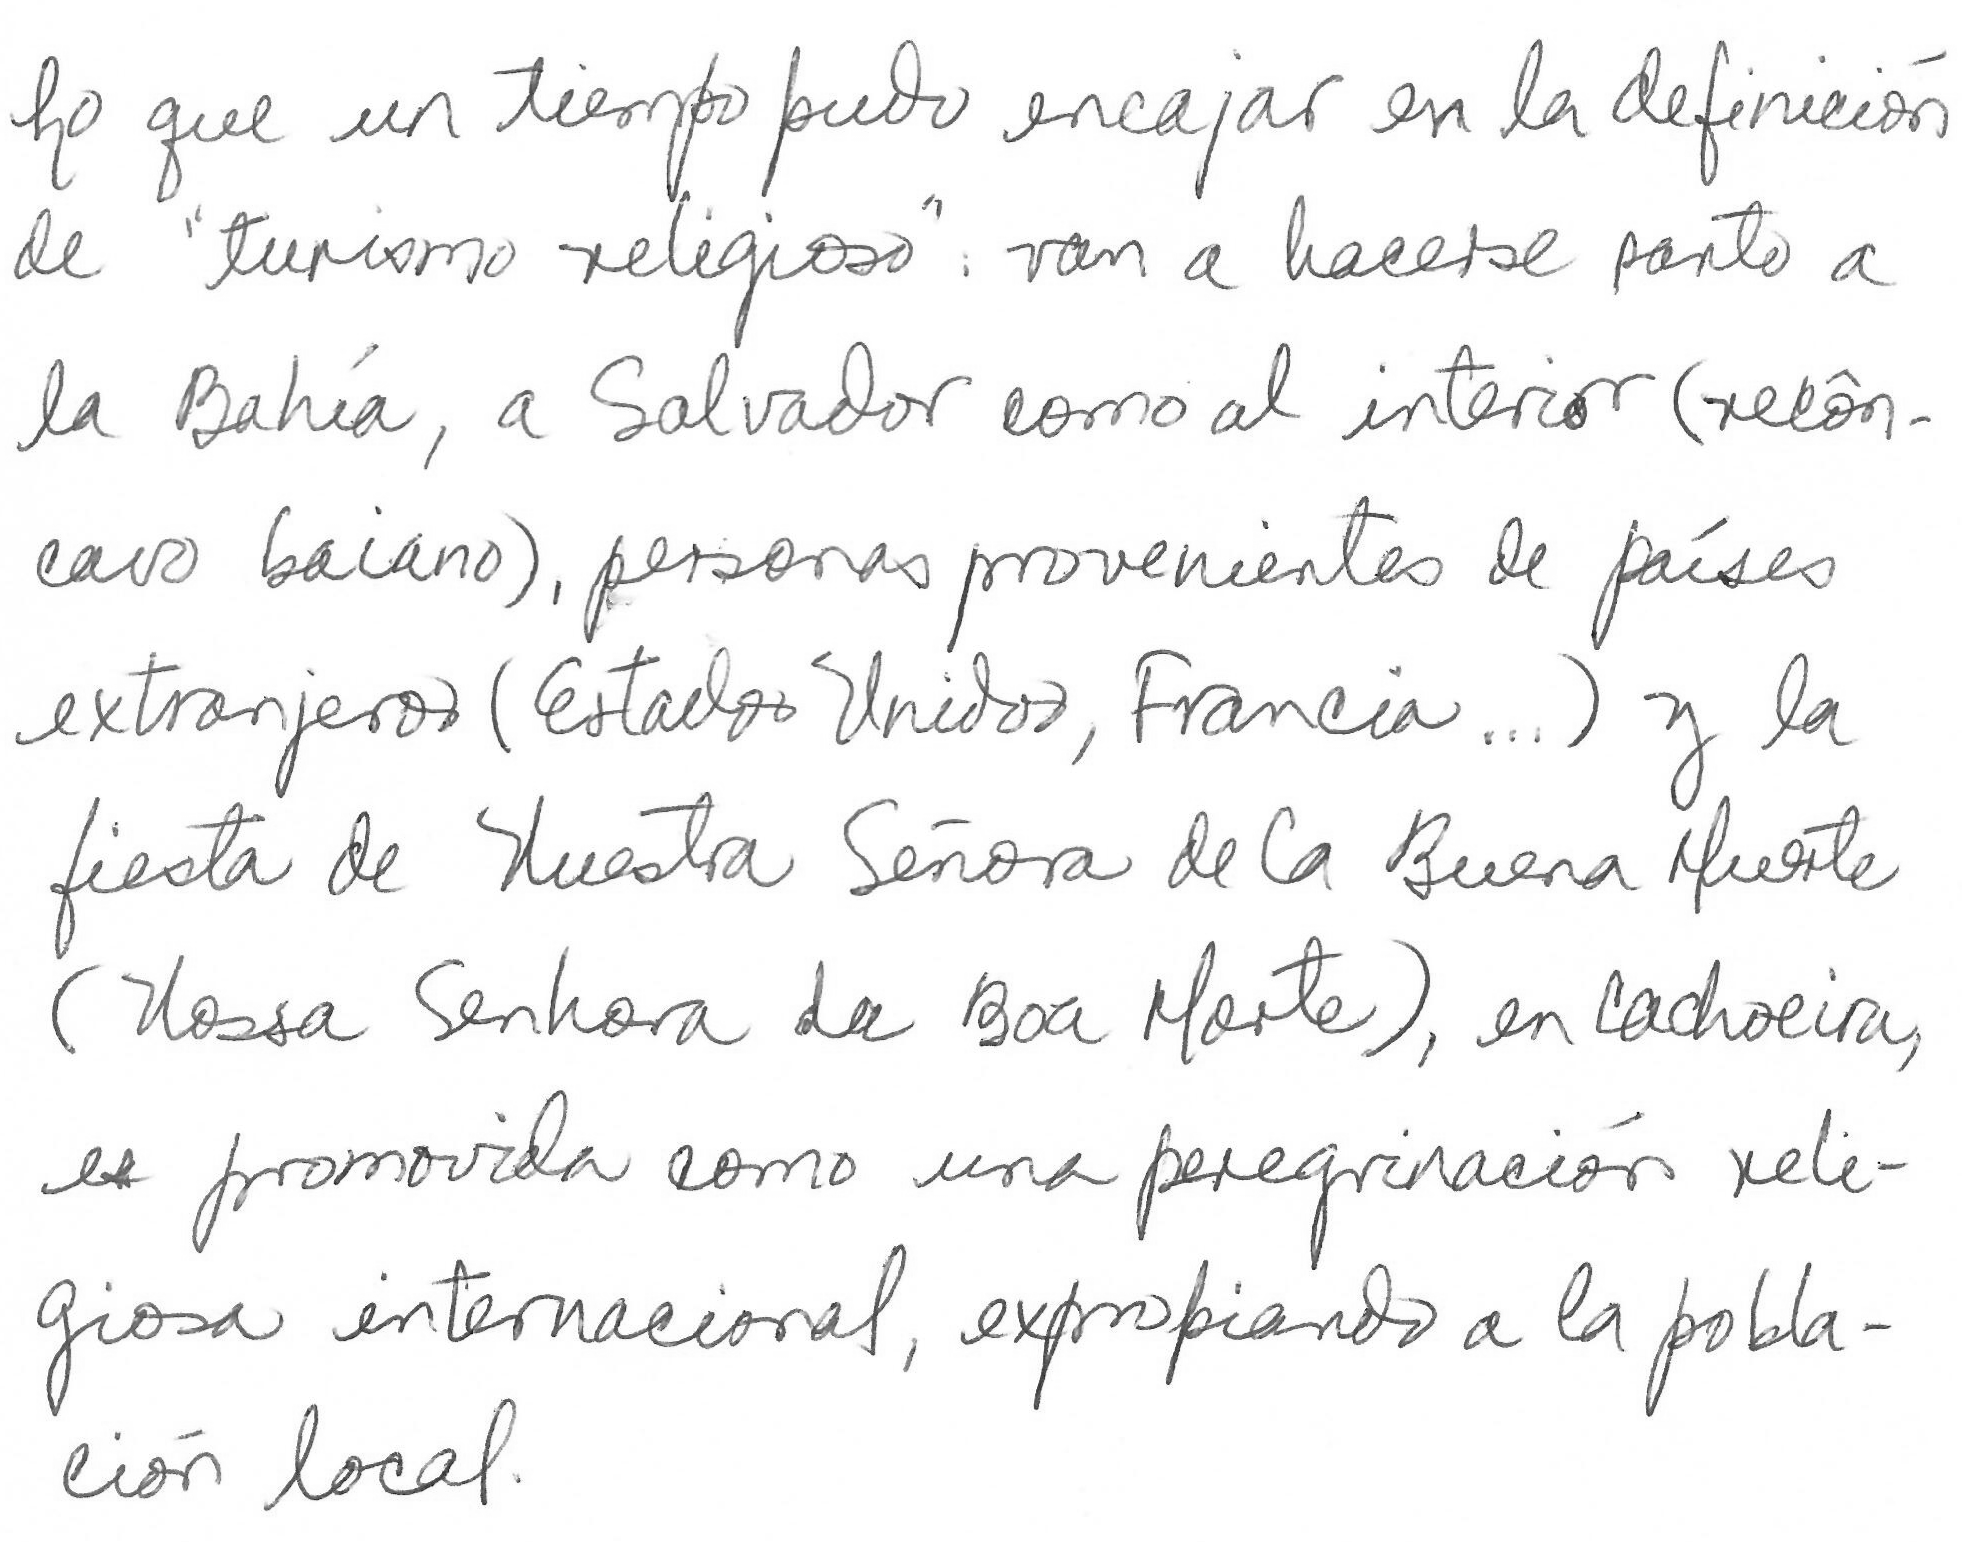 Lo que un tiempo pudo encajar en la definición
de "turismo religioso": van a hacerse santo a
la Bahía, a Salvador como al interior (recôn-
cavo baiano), personas provenientes de países
extranjeros (Estados Unidos, Francia...) y la
fiesta de Nuestra Señora de la Buena Muerte
(Nossa Senhora da Boa Morte), en Cachoeira,
es promovida como una peregrinación reli-
giosa internacional, expropiando a la pobla-
ción local.